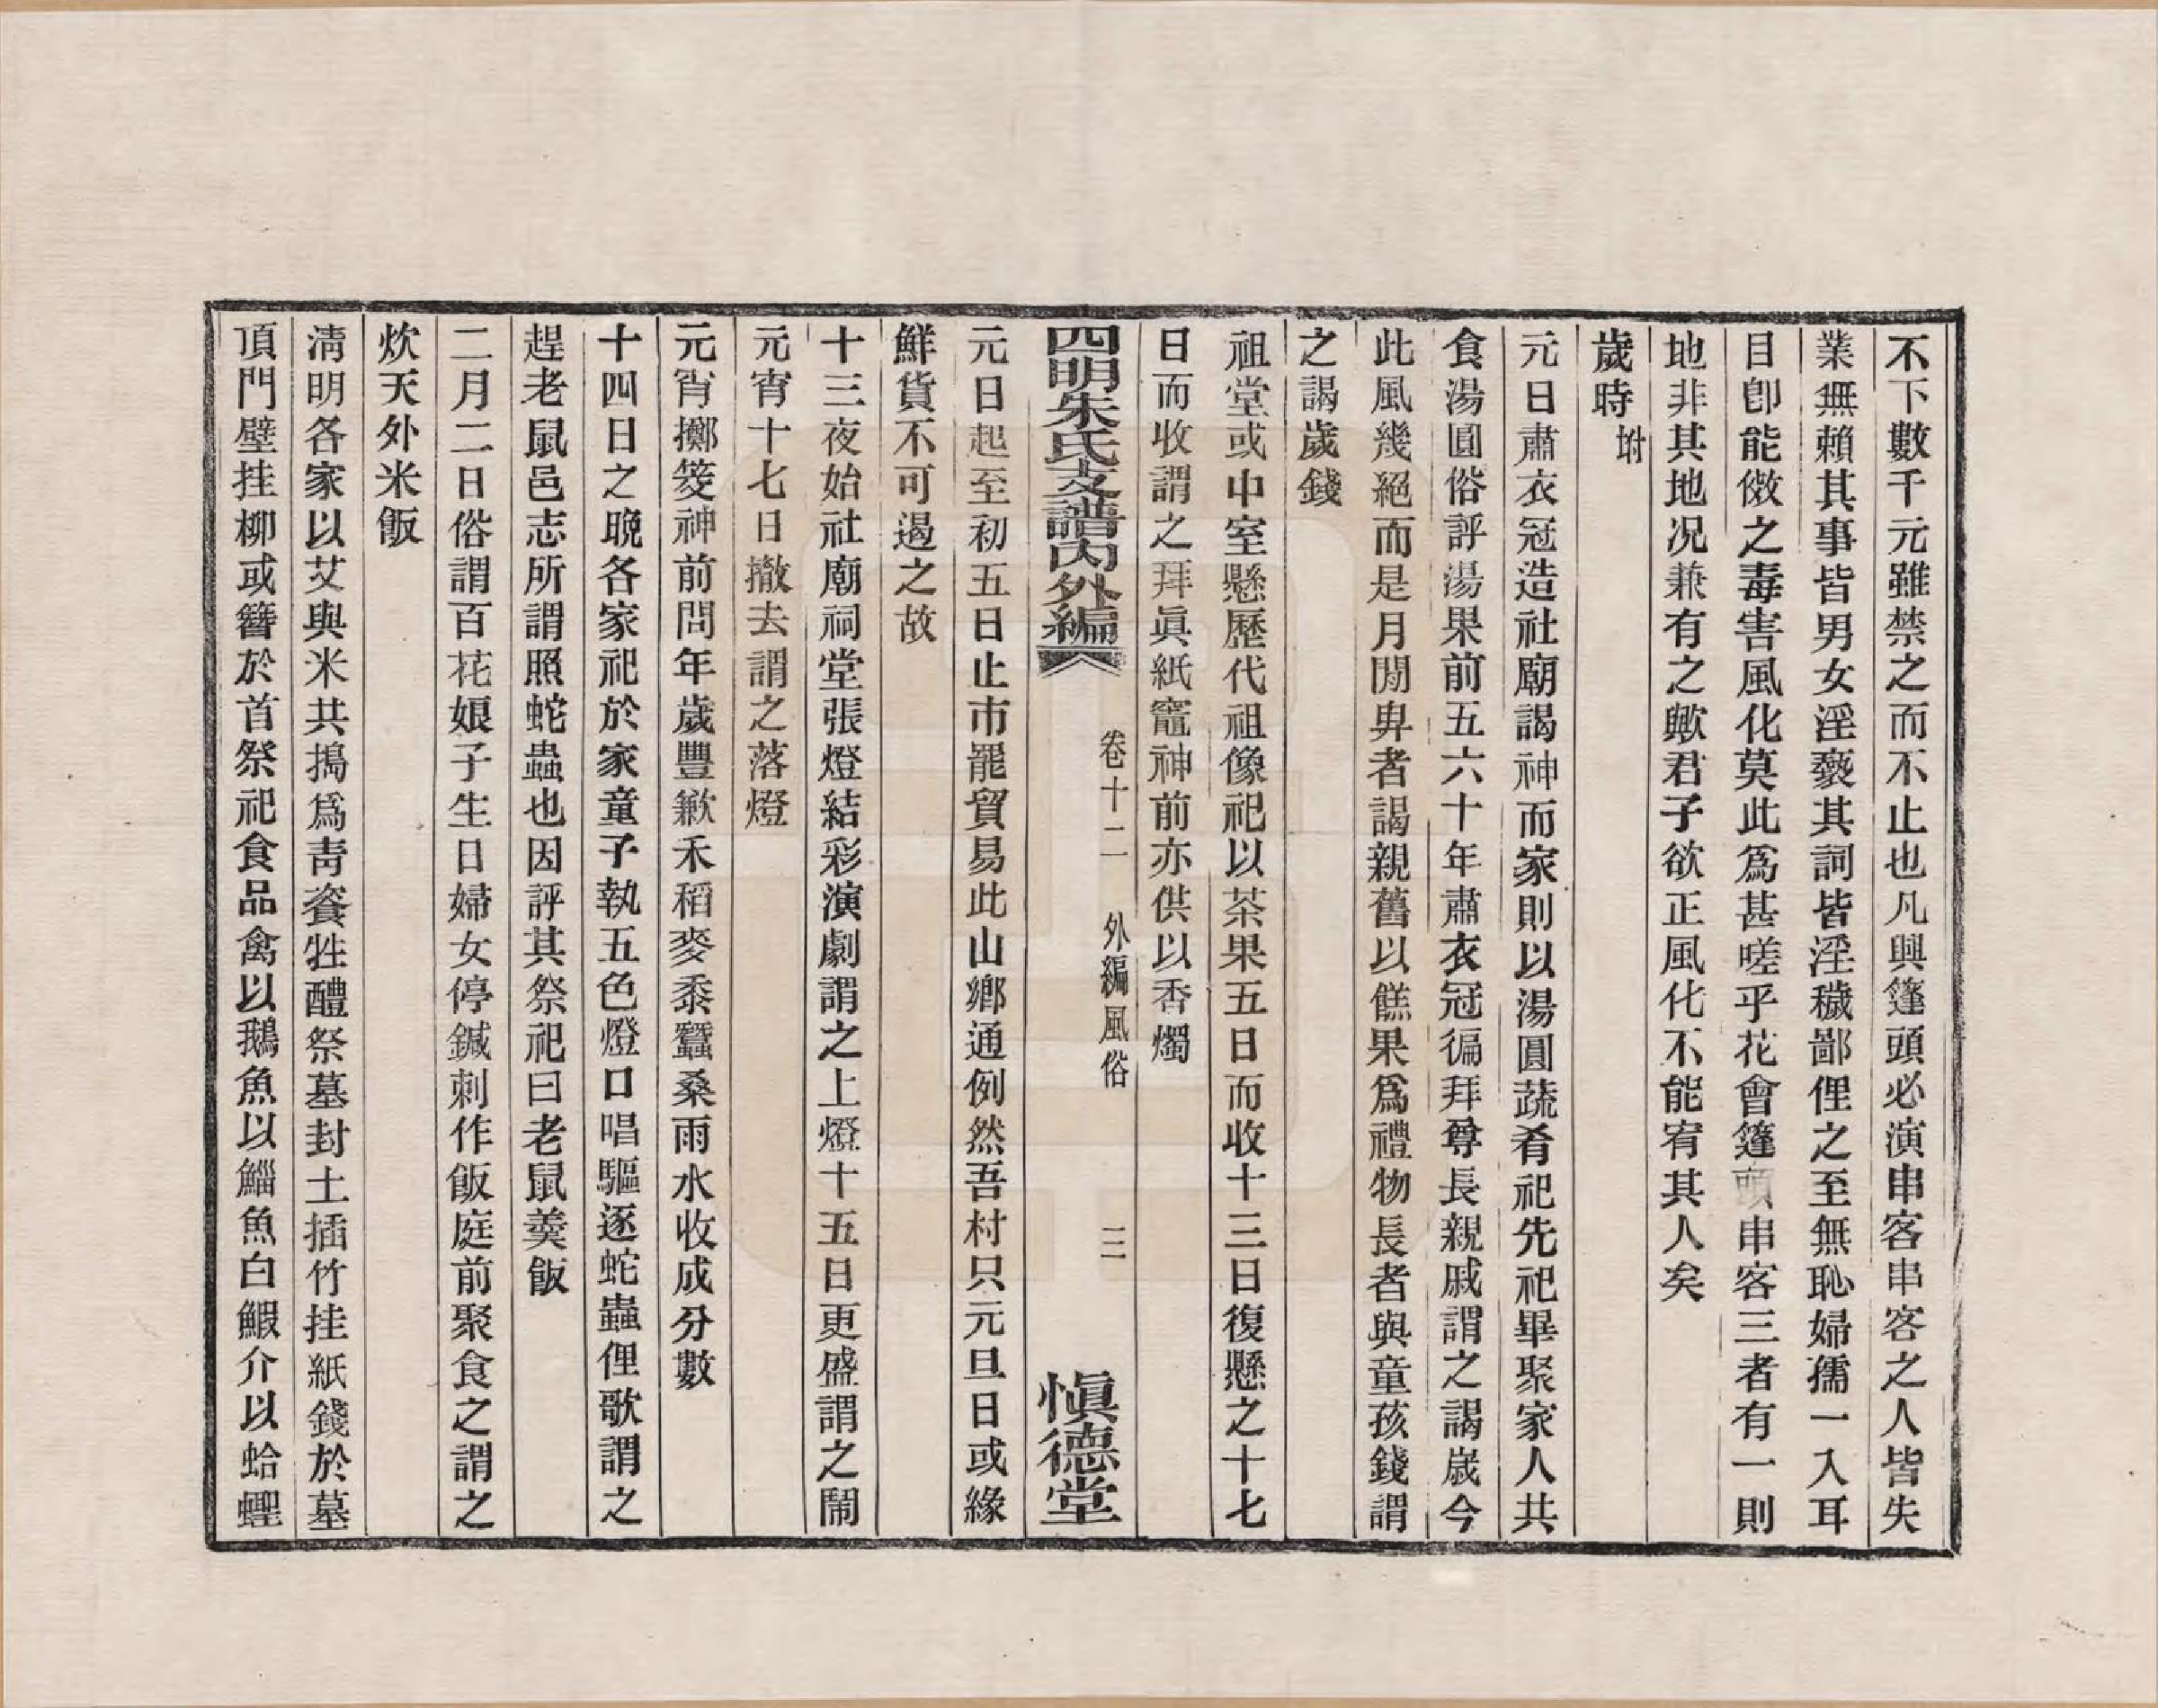 不下數千元雖禁之而不止也凡興篷頭必演串客串客之人皆失
業無賴其事皆男女淫褻其詞皆淫穢鄙俚之至無恥婦孺一入耳
目卽能儌之毒害風化莫此爲甚嗟乎花會篷頭串客三者有一則
地非其地况兼有之歟君子欲正風化不能宥其人矣
歲時坿
元日肅衣冠造社廟謁神而家則以湯圓蔬肴祀先祀畢聚家人共
食湯圓俗評湯果前五六十年肅衣冠徧拜尊長親戚謂之謁歲今
此風幾絕而是月閒畁者謁親舊以餻果爲禮物長者與童孩錢謂
之謁歲錢
祖堂或中室懸歷代祖像祀以茶果五日而收十三日復懸之十七
日而收謂之拜眞紙竈神前亦供以香燭
四明朱氏支譜內外編
卷十二 外編風俗
三
愼德堂
元日起至初五日止市罷貿易此山鄉通例然吾村只元旦日或緣
鮮貨不可遏之故
十三夜始社廟祠堂張燈結彩演劇謂之上燈十五日更盛謂之鬧
元宵十七日撤去謂之落燈
元宵擲筊神前問年歲豐歉禾稻麥黍蠶桑雨水收成分數
十四日之晚各家祀於家童子執五色燈口唱驅逐蛇蟲俚歌謂之
趕老鼠邑志所謂照蛇蟲也因評其祭祀曰老鼠羮飯
二月二日俗謂百花娘子生日婦女停鍼刺作飯庭前聚食之謂之
炊天外米飯
淸明各家以艾與米共搗爲靑餈牲醴祭墓封土插竹挂紙錢於墓
頂門壁挂柳或簪於首祭祀食品禽以鵝魚以鯔魚白鰕介以蛤蟶